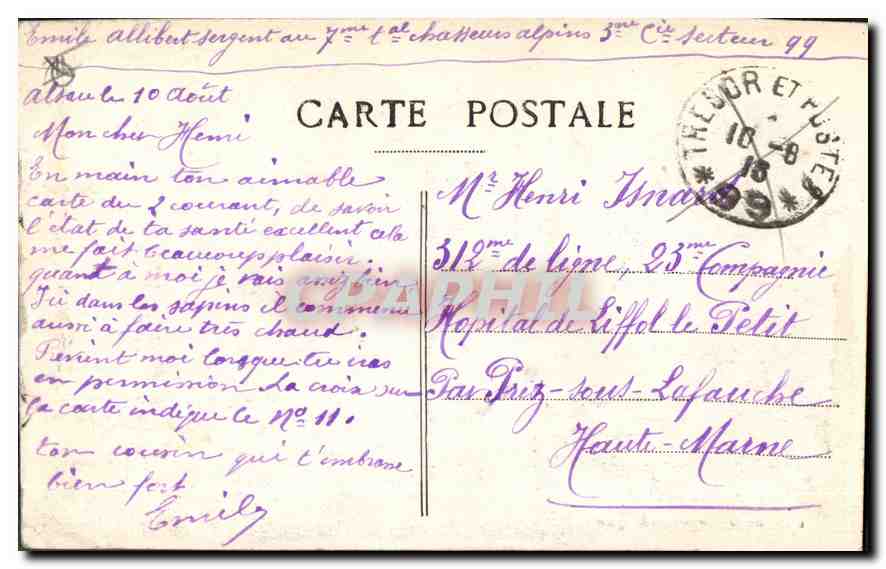 Emile Allibert sergent au 7me bal chasseurs alpins 3me Cie secteur 99
Alsace le 10 Août
CARTE POSTALE
TRESOR ET POSTES
10 -8
16
* 99 *
Mon cher Henri
En main ton aimable
carte du 2 courant, de savoir
l'état de ta santé excellent cela
me fait beaucoup plaisir.
quant à moi je vais assez bien
Ici dans les sapins il commence
aussi à faire très chaud.
Prévient moi lorsque tu iras
en permission La croix sur
la carte indique le No 11.
ton cousin qui t'embrasse
bien fort
Emile
Mr Henri Isnard
312me de ligne, 23me Compagnie
Hopital de Liffol le Petit
Par Prez-sous-Lafauche
Haute-Marne
CPAPHIL